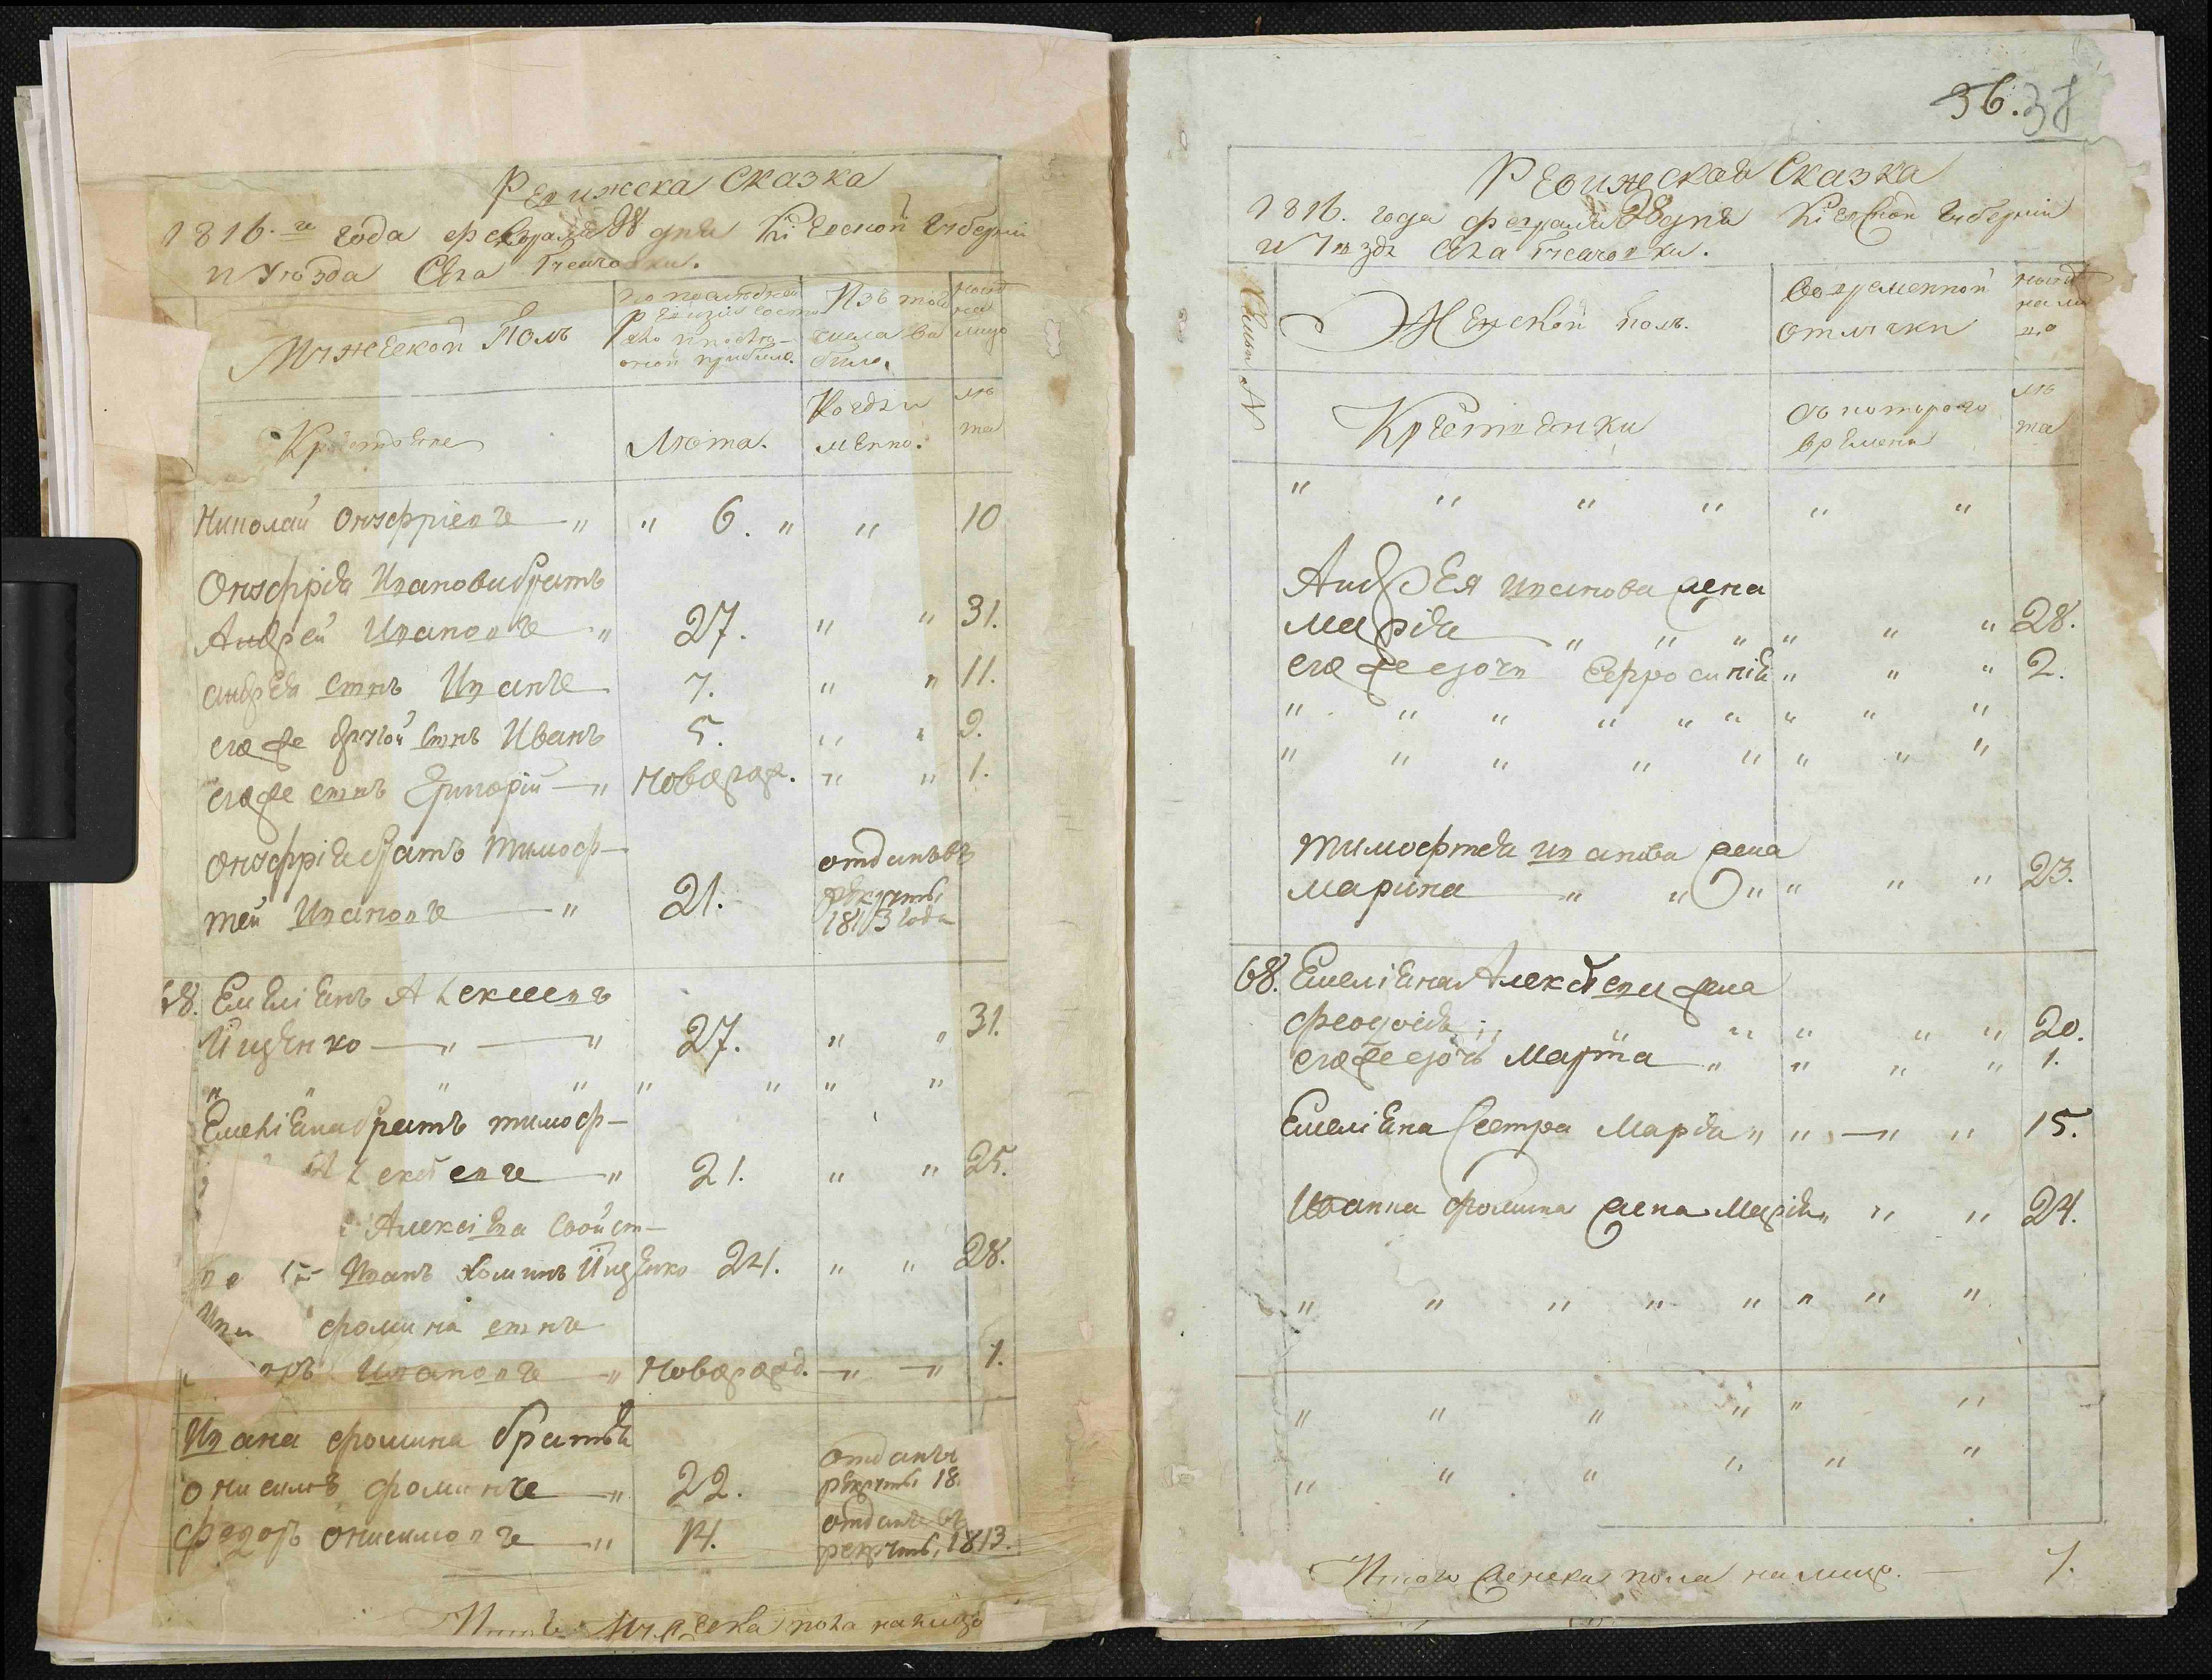 Ревижска Сказка
1816.го года февраля 28 дня Кіевской Губерніи
и Уѣзда Села
Мужескои Полъ
по послѣдней
Ревизіи состо
Изъ того
числа вы
было.
нынѣ
на
лицо
Крестьяне
Лѣта.
Когда и
менно.
лѣ
та
Николай Онуфріевъ " " 6. " " 10
Онуфрія Ивановъ братъ
Андрей Ивановъ " 27. " " 31.
Андрея сынъ Иванъ 7. " " 11.
его же другой сынъ Иванъ 5. " " 9.
его же сынъ Григорій " Новорож. " " 1.
Онуфрія братъ Тимоф-
тей Ивановъ " 21.
отданъ въ
рекруты
1813 года
68. Емеліянъ Алексеевъ
Ищенко " " 27. " " 31.
" " " " " " " "
Емеліяна братъ тимоф-
Алексѣевъ " 21. " " 25.
Алексіева свойст-
Иванъ Хоминъ Ищенко 24. " " 28.
фомина сынъ
Ивановъ " Новорожд. " " 1.
Ивана фомина братья
Онисимъ фоминъ " 22.
отданъ
рекруты 18
федоръ Онисимовъ " 14.
отданъ въ
рекруты, 1813.
Итого Мужеска пола налицо
36. 38
Ревижская Сказка
1816. года февраля 28 дня Кіевской Губерніи
и Уѣзда Села
Семьи №
Женской полъ.
Во временной
отлучки
нынѣ
нали
цо
Крестьянки
Съ котораго
времени
лѣ
та
" " " " " "
Андрея Иванова жена
Марія " " " " " " 28.
его же дочь Ефросинія " " " 2.
" " " " " " " " "
" " " " " " " "
Тимофтея Иванова жена
Марина " " " " " " 23.
68. Емеліяна Алексѣева жена
Феодосія " " " " " 20.
его же дочь Марта " " " " 1.
Емеліяна Сестра Марія " " " " 15.
Ивана Фомина жена Марія " " " 24.
" " " " " " " "
" " " " " "
" " " " " "
Итого женска пола налицо. 7.